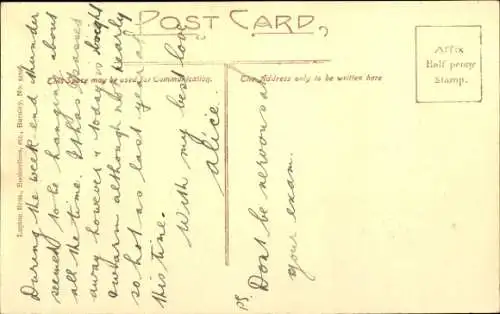 POST CARD
This space may be used for Communication.
The Address only to be written here
Affix
Half penny
Stamp.
During the week end thunder
seemed to be hanging about
all the time. It has passes
away however & today is bright
& warm although not nearly
so hot as last year at
this time.
With my best love
Alice.
PS. Dont be nervous at
your exam.